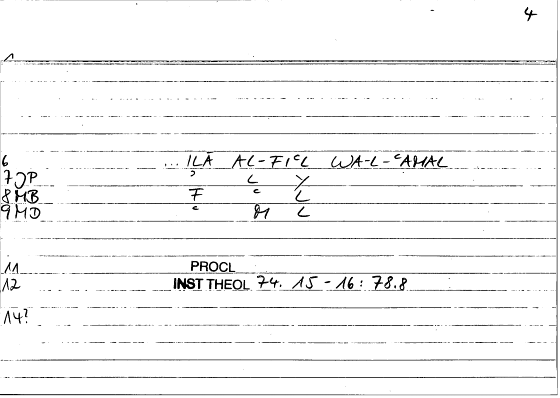 4
1
6 ... ILĀ AL-FIᶜL WA-L-ᶜAMAL
7 JP ʾ L Y
8 MB F ᶜ L
9 MD ᶜ M L
11 PROCL
12 INST THEOL 74. 15 - 16 : 78.8
14?